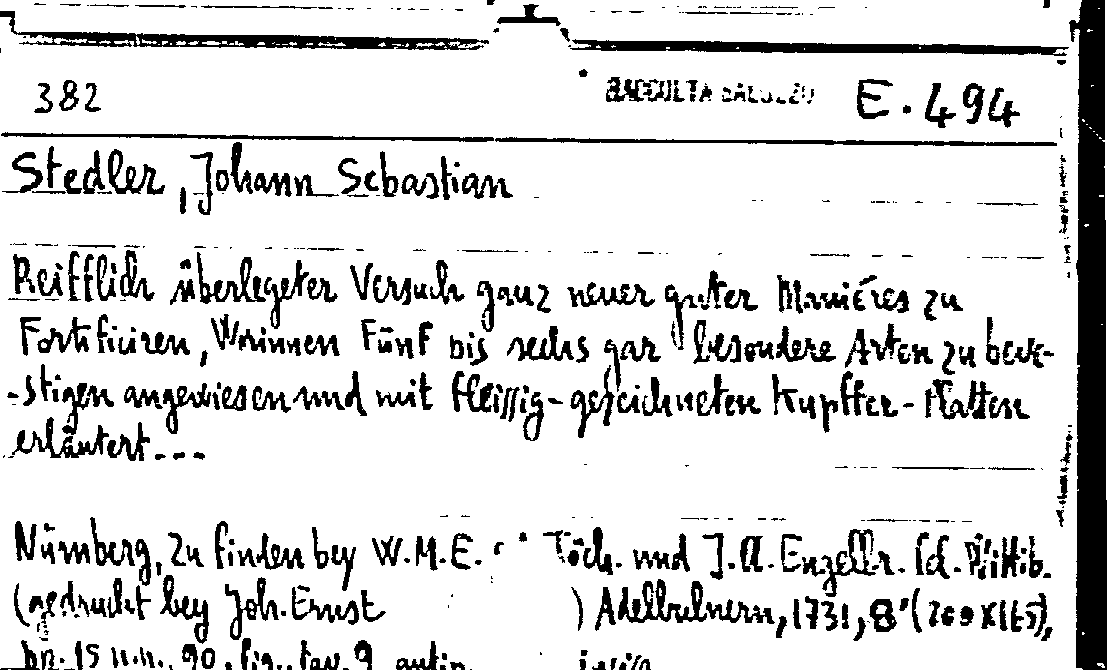 382 RACCOLTA SALUZZO E.494
Stedler, Johann Sebastian
Reifflich überlegeter Versuch ganz neuer guter Maniéres zu
Fortificiren, Worinnen Fünf bis sechs gar besondere Arten zu beve-
-stigen angewiesen und mit fleissig-gezeichneten Kupffer-Platten
erläutert---
Nürnberg, zu finden bey W.M.E. Töch. und J.A. Engellr.
(gedruckt bey Joh. Ernst ) Adelbulnern, 1731, 8°(200X165),
pp. 15 90, fig., tav. 9 antip.